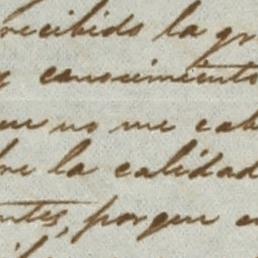 recibido la gr
y conocimiento
que no me cab
bre la calidad
ntes, porque e